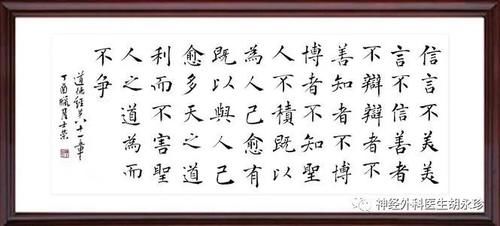 信言不美美
言不信善者
不辯辯者不
善知者不博
博者不知聖
人不積既以
為人己愈有
既以與人己
愈多天之道
利而不害聖
人之道為而
不争
道德经第八十一章
丁酉
神经外科医生胡永珍